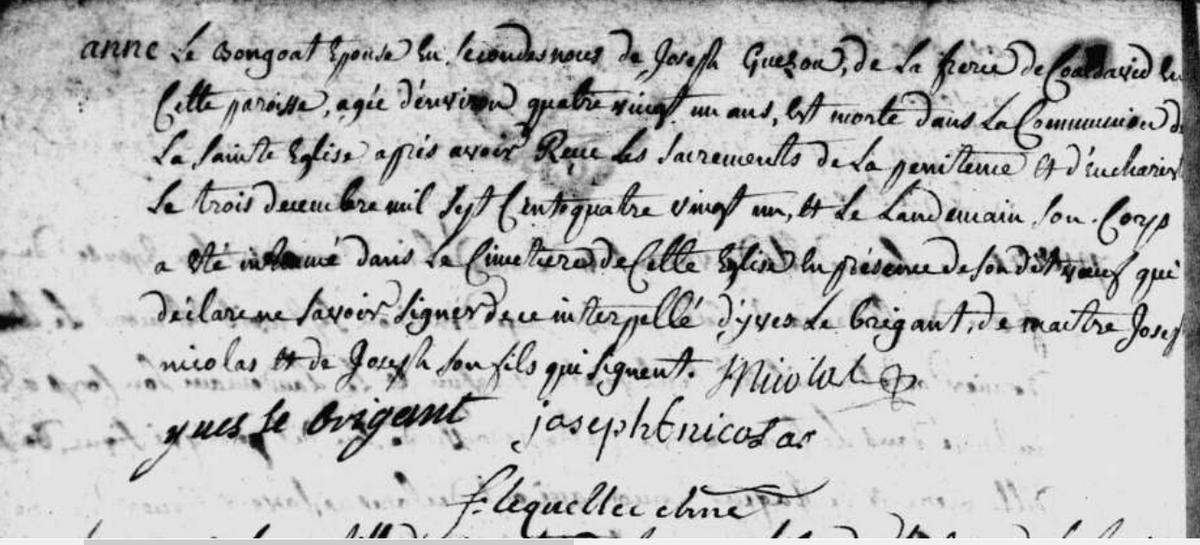 anne Le Bongoat Epouse En secondes noces de Joseph Guezou, de La frerie de
Cette paroisse, agée d'environ quatre vingt un ans, est morte dans La Communion de
La sainte Eglise aprés avoir Reçu Les sacrements de La penitence et d'Eucharist
Le trois decembre mil sept Cent quatre vingt un, et Le Landemain son Corps
a été inhumé dans Le Cimetiere de Cette Eglise En présence de son dit veuf qui
déclare ne savoir signer de ce interpellé d'yves Le brigant, de maitre Josep
nicolas et de Joseph son fils qui signent. Nicolas
yves le brigant joseph nicolas